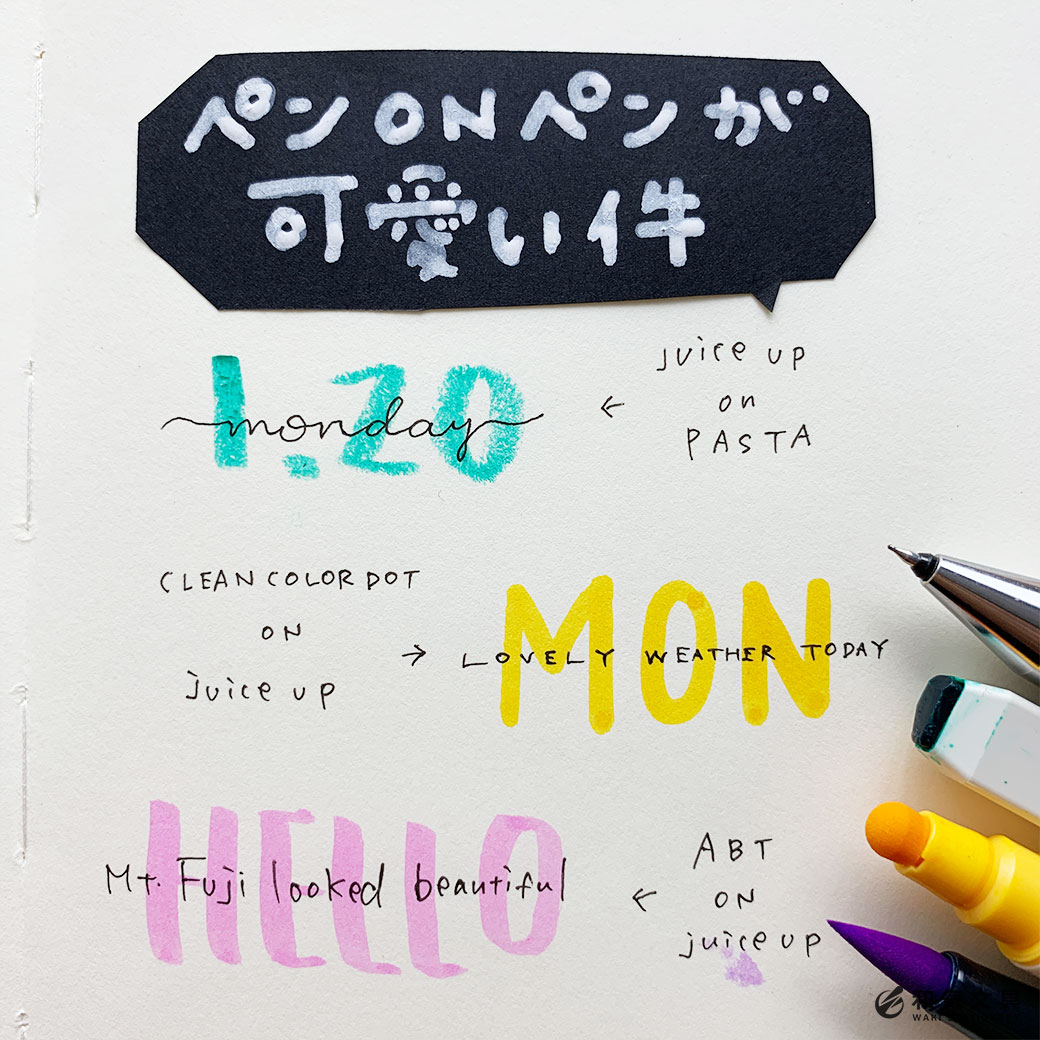 ペンONペンが
可愛い件
1.20
monday
←
juice up
on
PASTA
CLEAN COLOR DOT
ON
juice up
→
MON
LOVELY WEATHER TODAY
HELLO
Mt. Fuji looked beautiful
←
ABT
ON
juice up